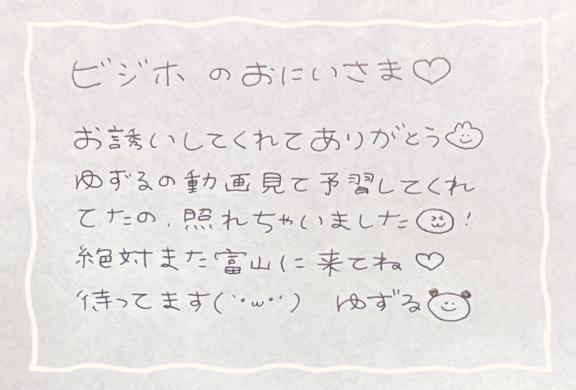 ビジホ のおにいさま♡
お誘いしてくれてありがとう
ゆずるの動画見て予習してくれ
てたの、照れちゃいました！
絶対また富山に来てね♡
待ってます(´･ω･`) ゆずる